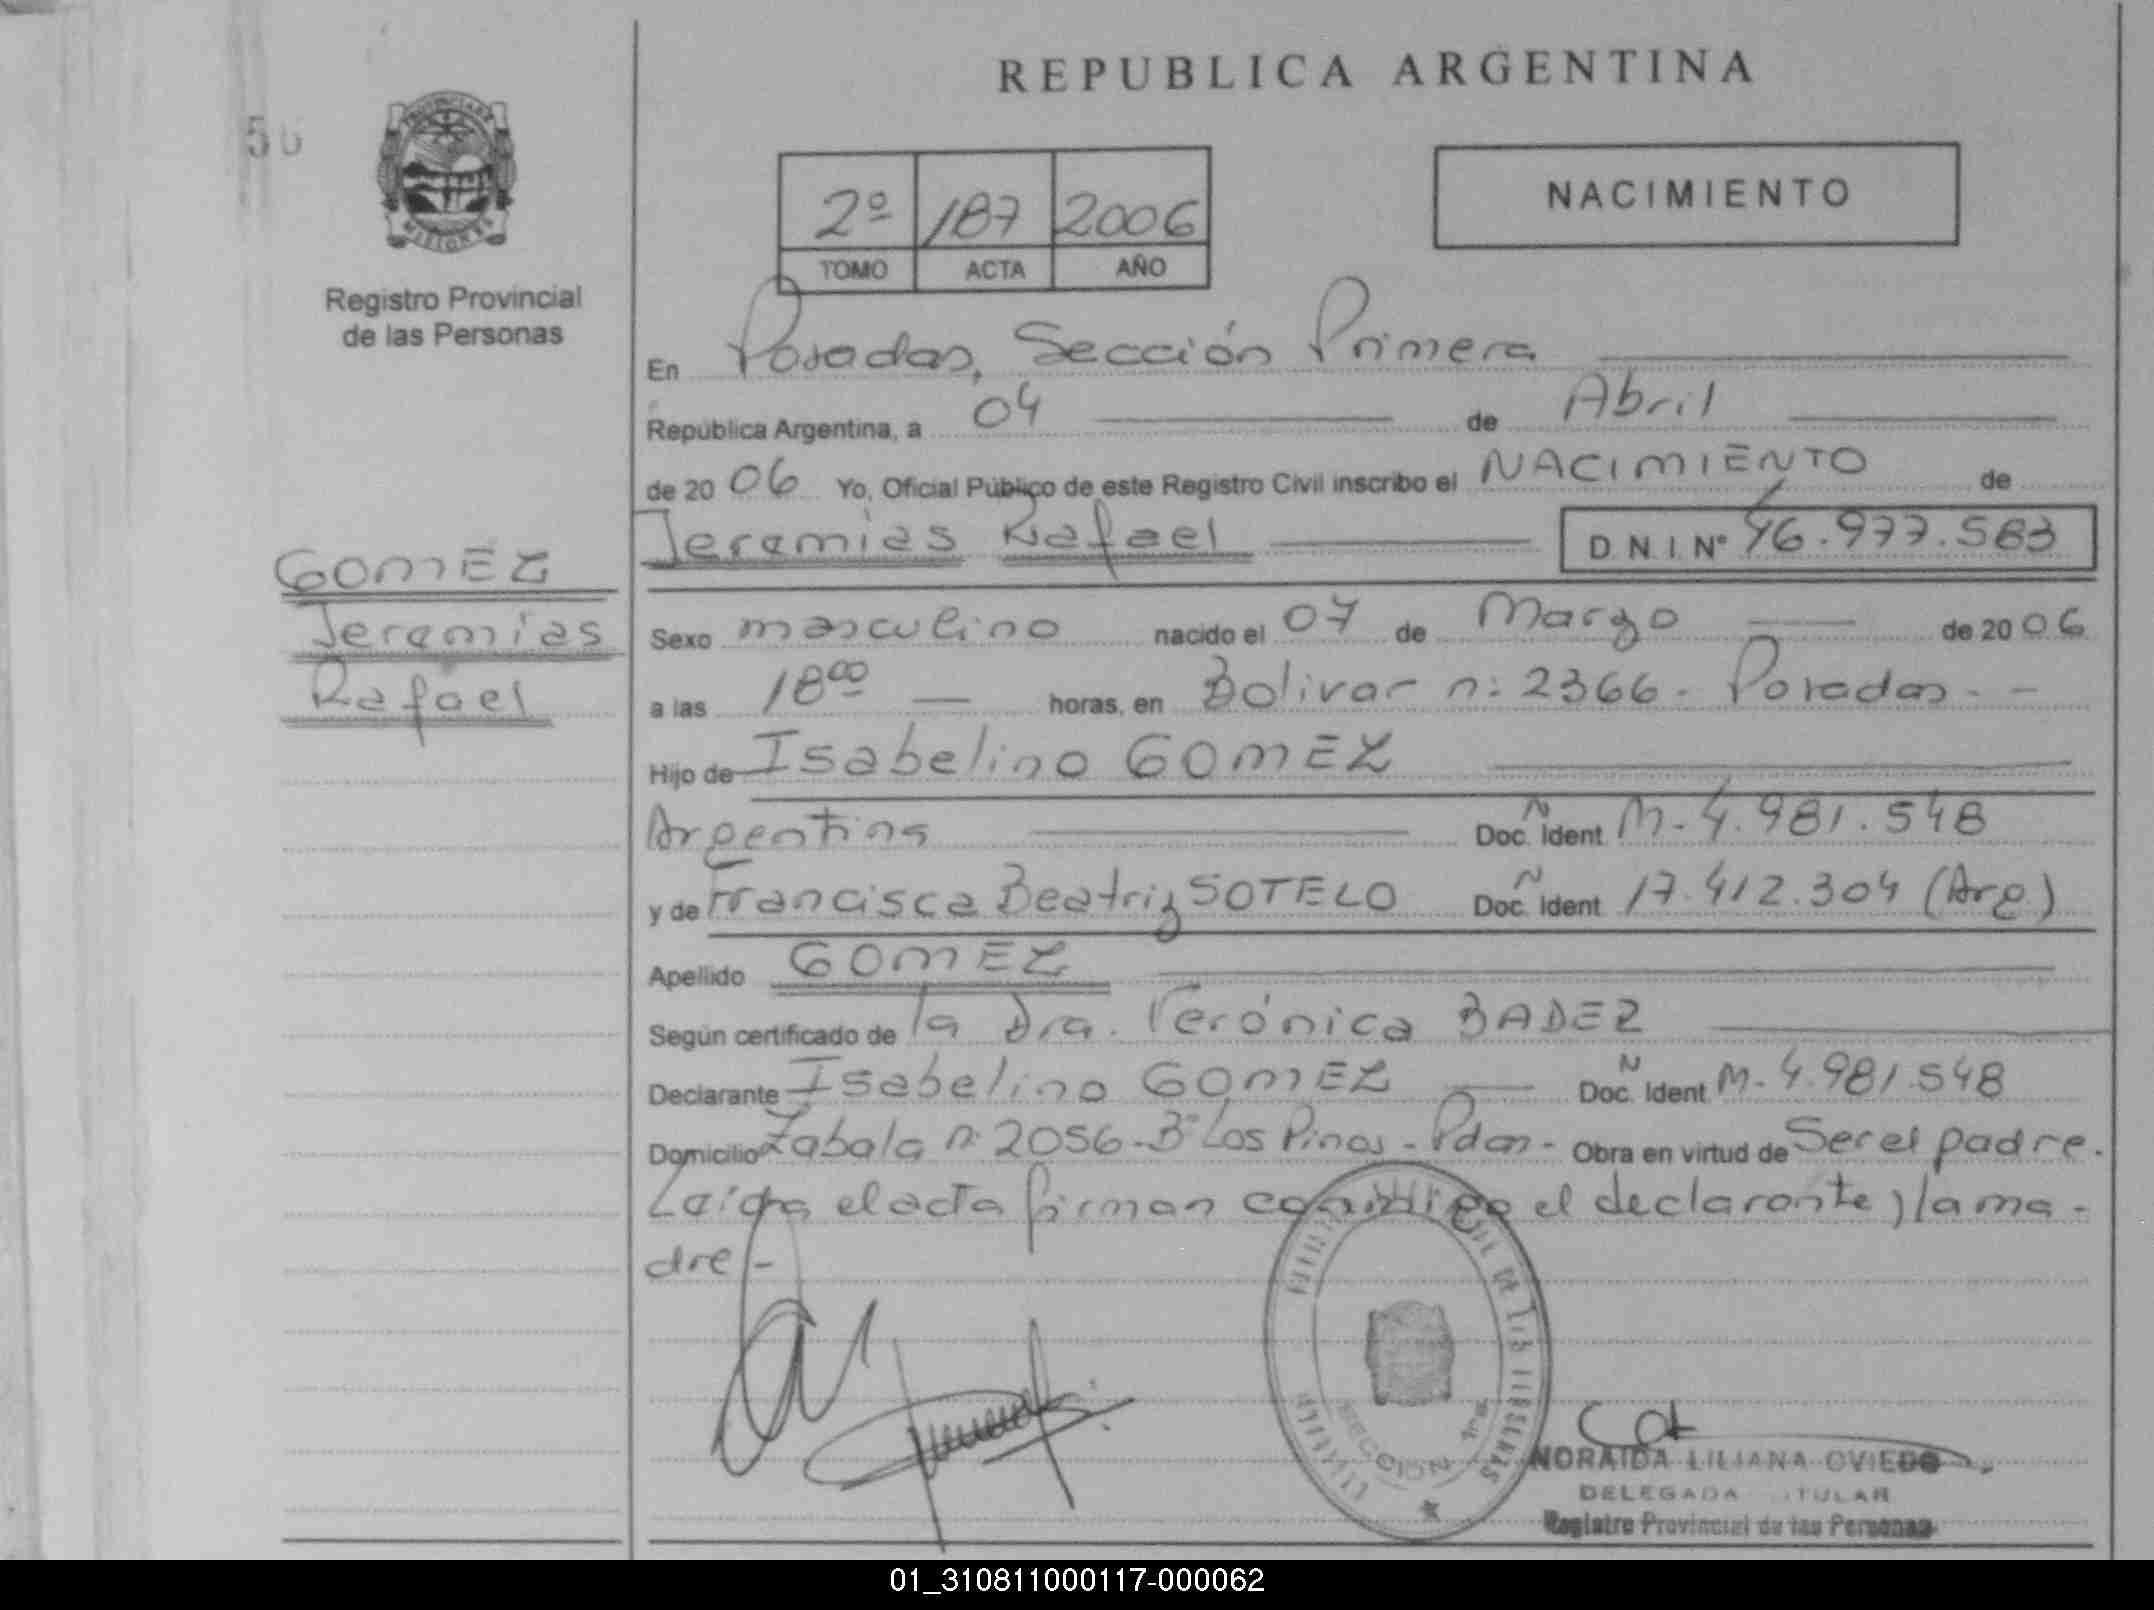 REPUBLICA ARGENTINA
PROVINCIA DE
MISIONES
Registro Provincial
de las Personas
2º 187 2006
TOMO ACTA AÑO
NACIMIENTO
En Posadas, Sección Primera
República Argentina, a 04 de Abril
de 2006 Yo, Oficial Público de este Registro Civil inscribo el NACIMIENTO de
Jeremias Rafael D.N.I. Nº 46.977.583
GOMEZ
Jeremias
Rafael
Sexo masculino nacido el 07 de Marzo de 2006
a las 18⁰⁰ horas, en Bolivar n: 2366 - Posadas - -
Hijo de Isabelino GOMEZ
Argentina Doc. Ident M- 4.981.548
y de Francisca Beatriz SOTELO Doc. Ident 17.412.304 (Arg)
Apellido GOMEZ
Según certificado de la Dra. Verónica BADER
Declarante Isabelino GOMEZ Doc. Ident M- 4.981.548
Domicilio Zabala n: 2056 - Bº Los Pinos - Pdas - Obra en virtud de Ser el padre.
Leída el acta firman conmigo el declarante y la ma-
dre -
SECCION 1ra
NORAIDA LILIANA OVIEDO
DELEGADA TITULAR
Registro Provincial de las Personas
01_310811000117-000062